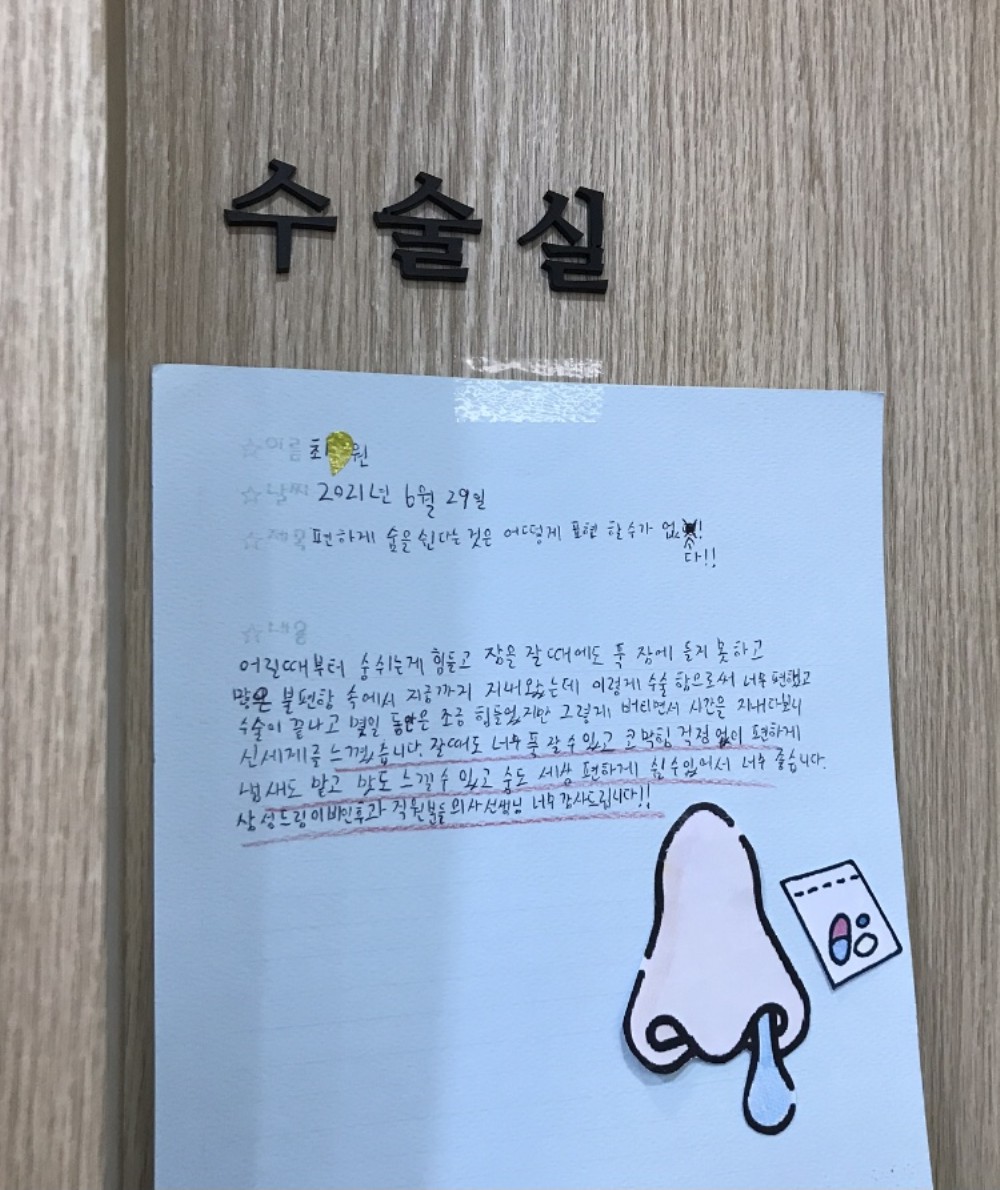 수술실
☆이름 최 원
☆날짜 2021년 6월 29일
☆제목 편하게 숨을 쉰다는 것은 어떻게 표현 할수가 없!
다!!
☆내용
어릴때부터 숨쉬는게 힘들고 잠을 잘때에도 푹 잠에 들지 못하고
많은 불편함 속에서 지금까지 지내왔는데 이렇게 수술 함으로써 너무 편했고
수술이 끝나고 몇일 동안은 조금 힘들었지만 그렇게 버티면서 시간을 지내다보니
신세계를 느꼈습니다. 잘때도 너무 푹 잘 수 있고 코막힘 걱정 없이 편하게
냄새도 맡고 맛도 느낄 수 있고 숨도 세상 편하게 쉴 수있어서 너무 좋습니다.
삼성드림이비인후과 직원분들 의사선생님 너무 감사드립니다!!